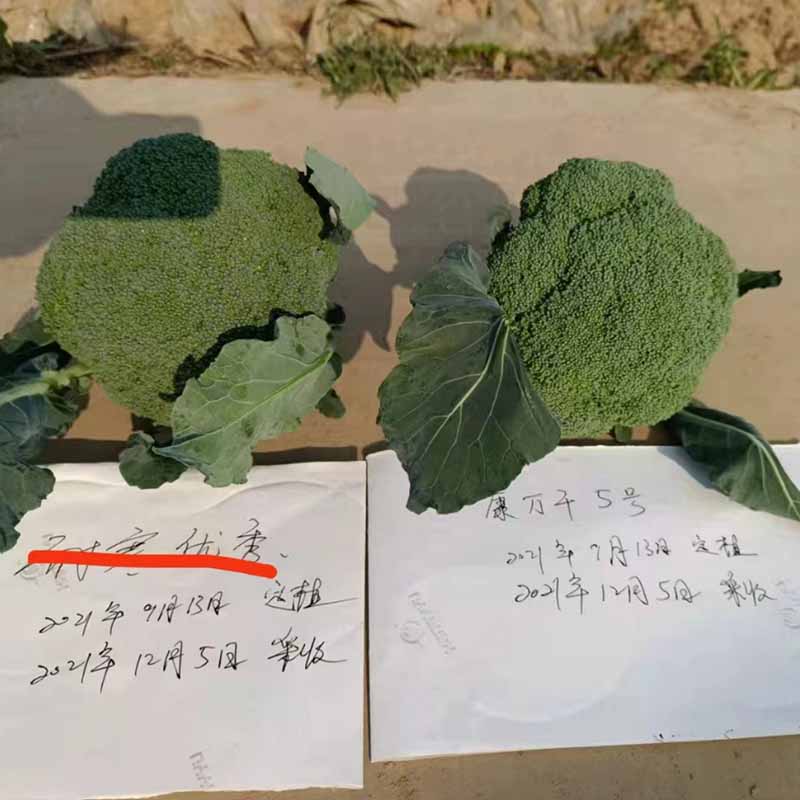 耐寒优秀、
2021年9月13日 定植
2021年12月5日 采收
康万千5号
2021年9月13日 定植
2021年12月5日 采收